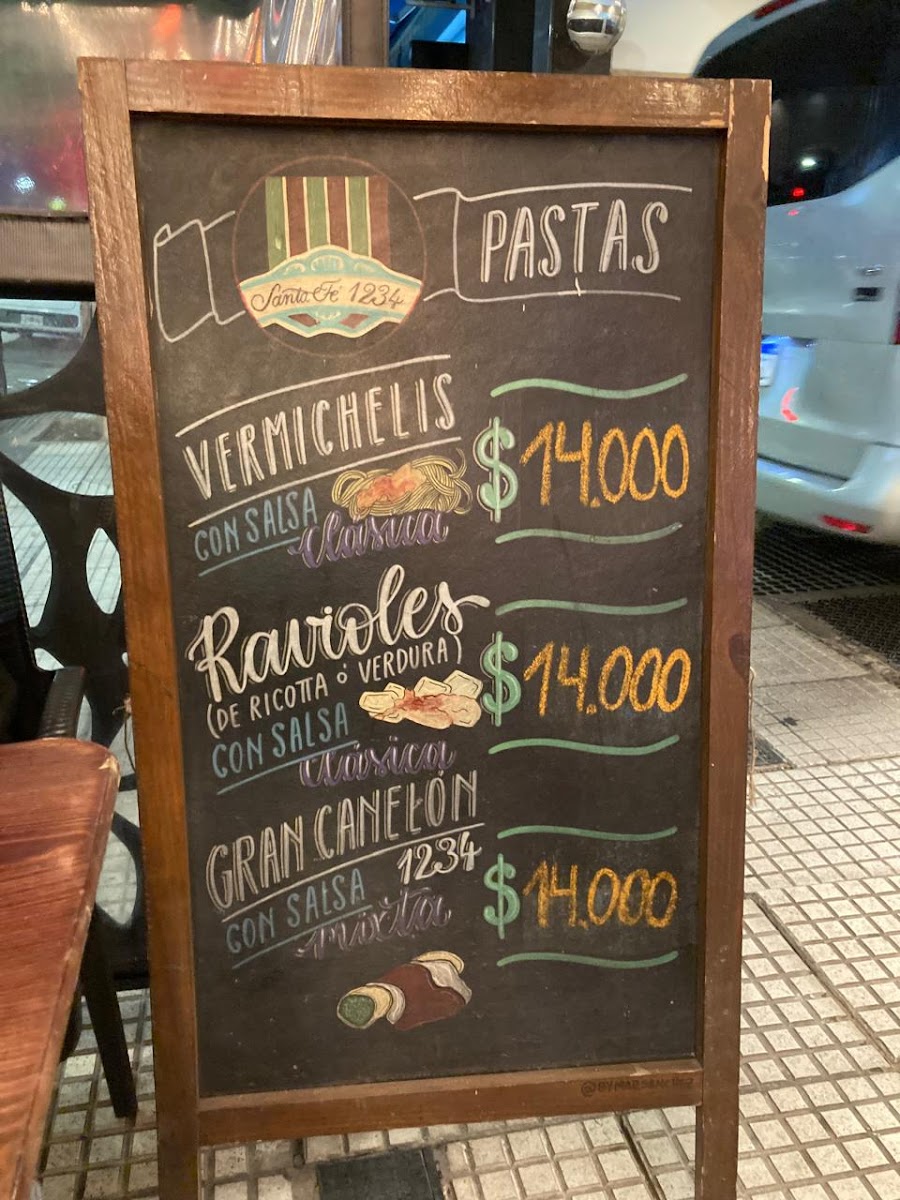 Santa Fé 1234
PASTAS
VERMICHELIS
CON SALSA
clásica
$14.000
Ravioles
(DE RICOTTA ó VERDURA)
CON SALSA
clásica
$14.000
GRAN CANELÓN
1234
CON SALSA
mixta
$14.000
@BYMARSANCHEZ